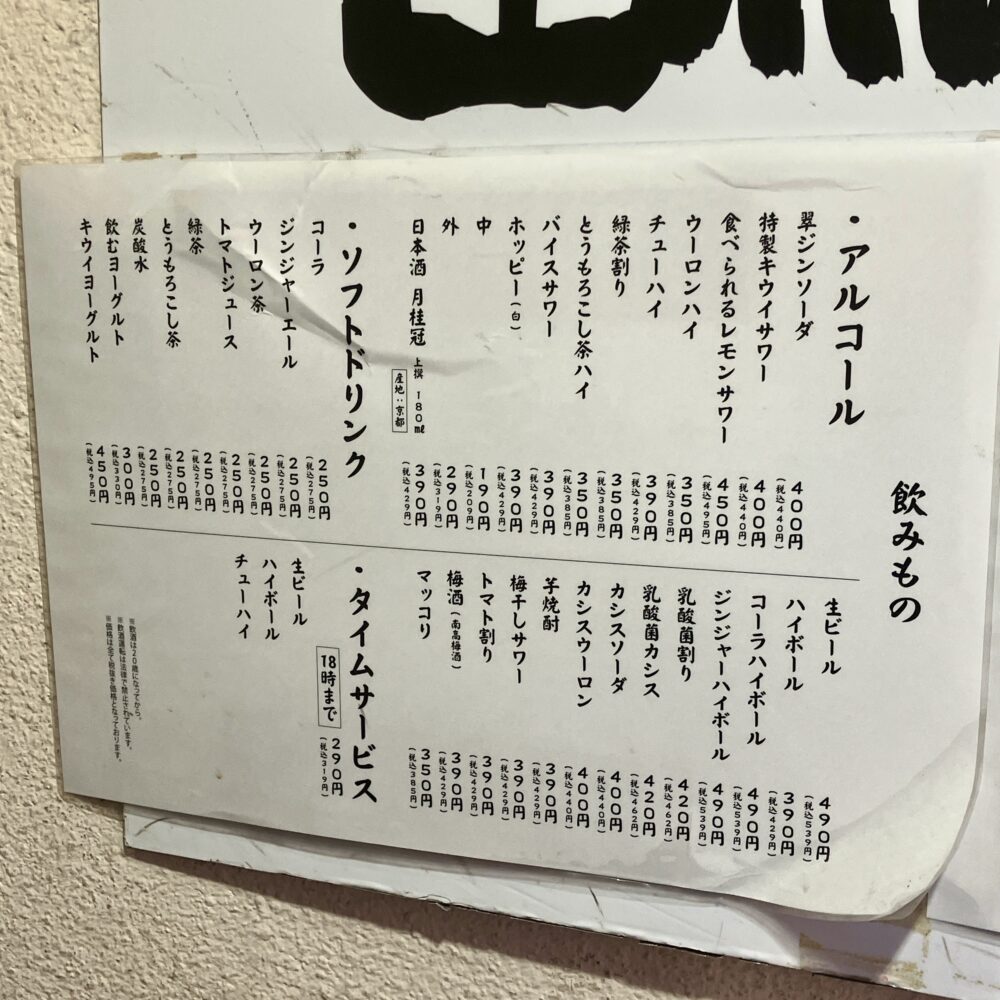 飲みもの
・アルコール
翠ジンソーダ 400円(税込440円)
特製キウイサワー 400円(税込440円)
食べられるレモンサワー 450円(税込495円)
ウーロンハイ 350円(税込385円)
チューハイ 390円(税込429円)
緑茶割り 350円(税込385円)
とうもろこし茶ハイ 350円(税込385円)
バイスサワー 390円(税込429円)
ホッピー(白) 390円(税込429円)
中 190円(税込209円)
外 290円(税込319円)
日本酒 月桂冠 上撰 180㎖ 産地:京都 390円(税込429円)
・ソフトドリンク
コーラ 250円(税込275円)
ジンジャーエール 250円(税込275円)
ウーロン茶 250円(税込275円)
トマトジュース 250円(税込275円)
緑茶 250円(税込275円)
とうもろこし茶 250円(税込275円)
炭酸水 250円(税込275円)
飲むヨーグルト 300円(税込330円)
キウイヨーグルト 450円(税込495円)
生ビール 490円(税込539円)
ハイボール 390円(税込429円)
コーラハイボール 490円(税込539円)
ジンジャーハイボール 490円(税込539円)
乳酸菌割り 420円(税込462円)
乳酸菌カシス 420円(税込462円)
カシスソーダ 400円(税込440円)
カシスウーロン 400円(税込440円)
芋焼酎 390円(税込429円)
梅干しサワー 390円(税込429円)
トマト割り 390円(税込429円)
梅酒(南高梅酒) 390円(税込429円)
マッコリ 350円(税込385円)
・タイムサービス
18時まで 290円(税込319円)
生ビール
ハイボール
チューハイ
※飲酒は20歳になってから。
※飲酒運転は法律で禁止されています。
※価格は全て税抜き価格となっております。